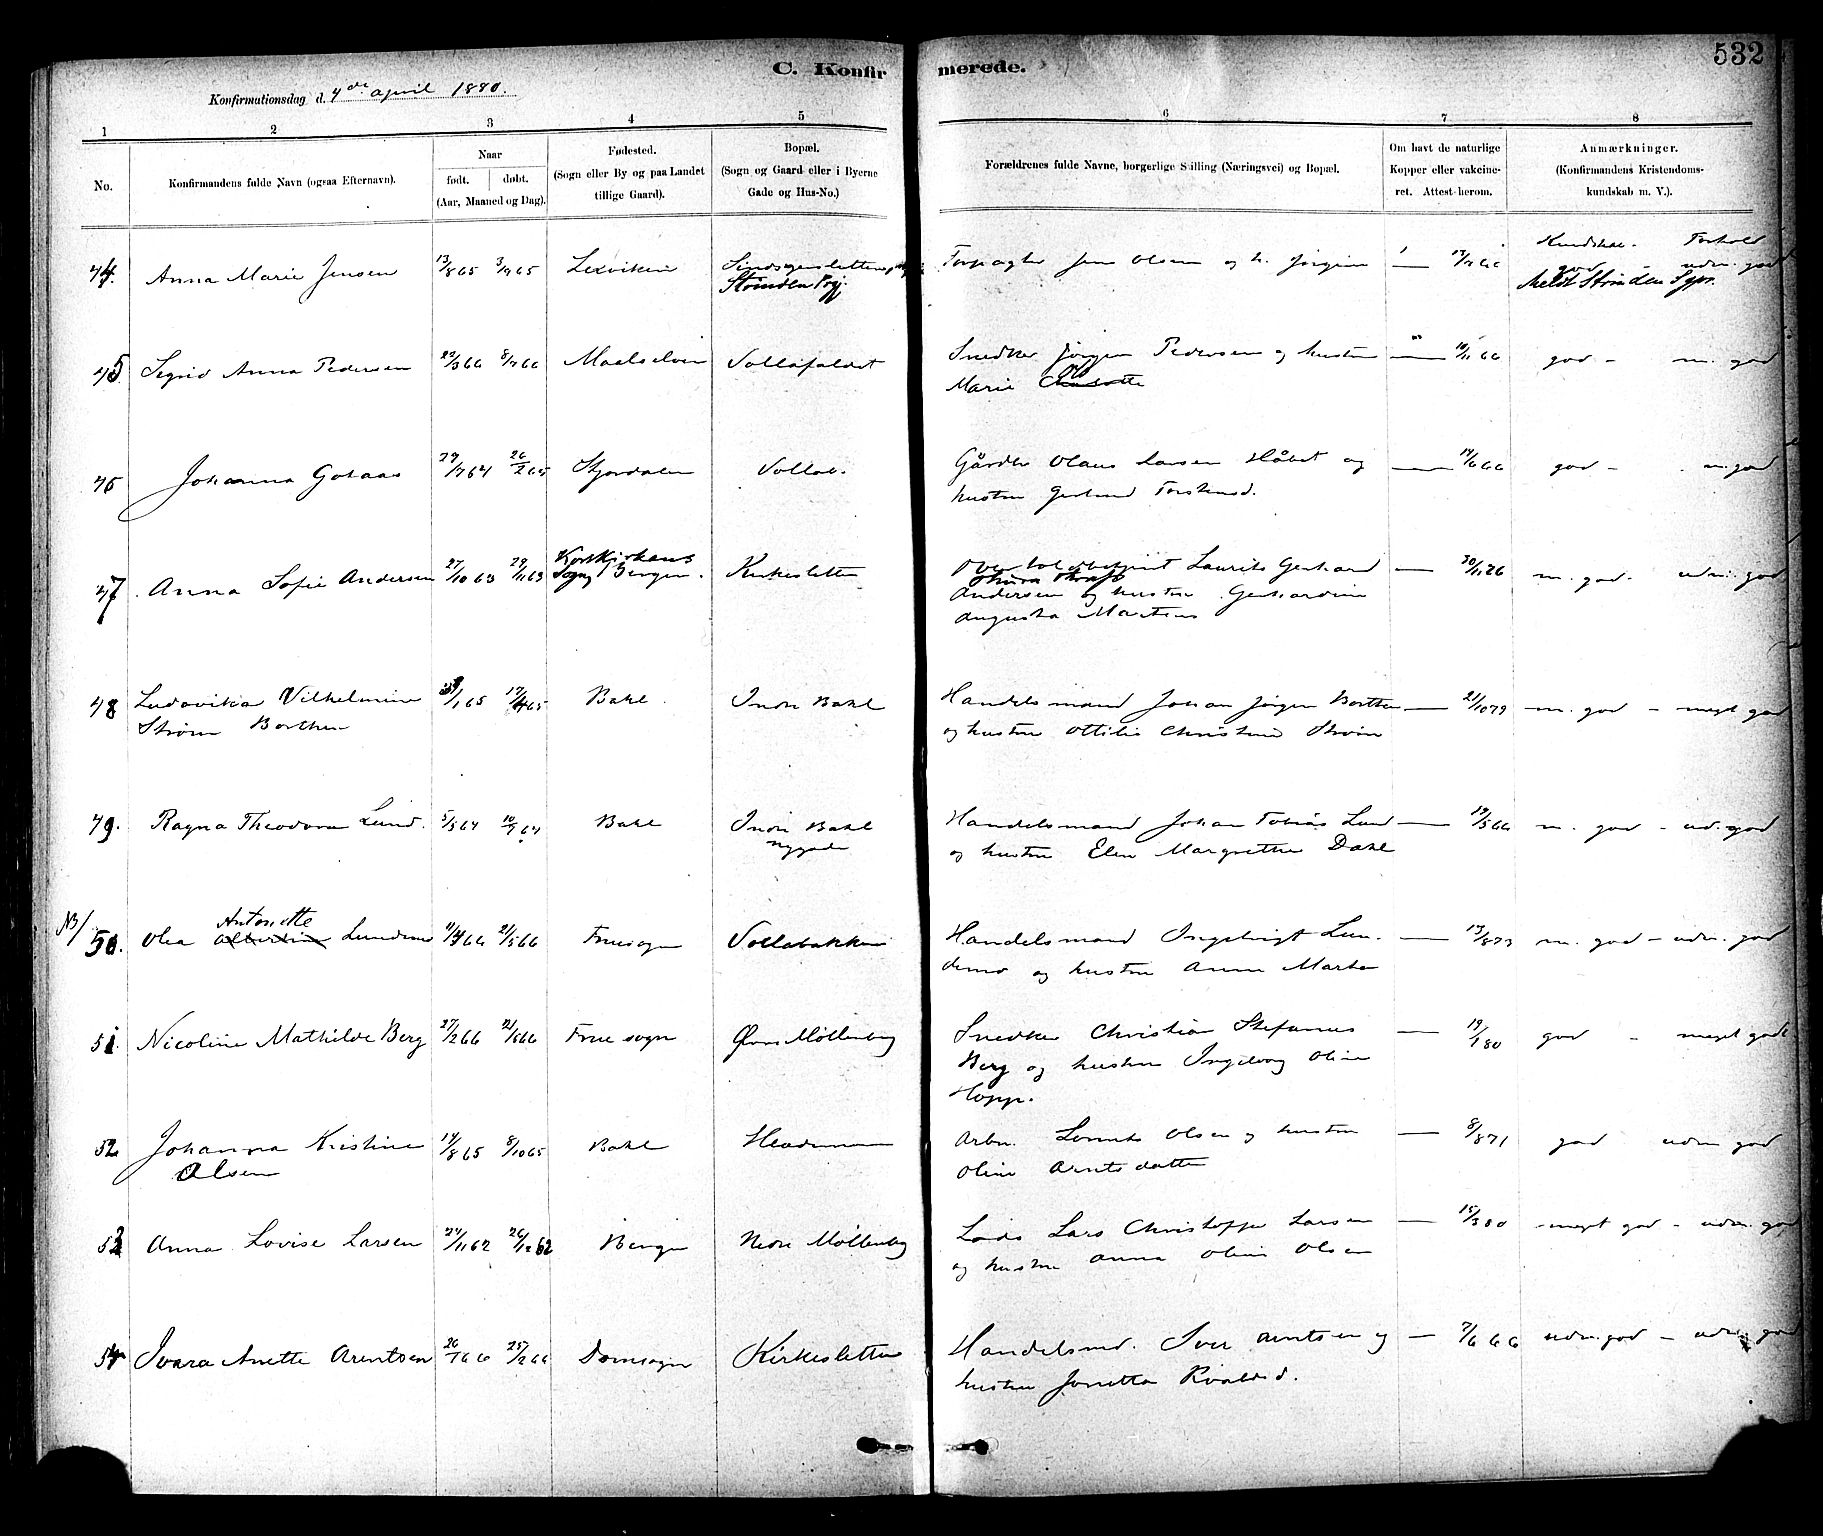 532
C. Konfirmerede.
Konfirmationsdag d. 4de april 1880.
1 2 3 4 5 6 7 8
No.
Konfirmandens fulde Navn (ogsaa Efternavn).
Naar
født. døbt.
(Aar, Maaned og Dag).
Fødested.
(Sogn eller By og paa Landet
tillige Gaard).
Bopæl.
(Sogn og Gaard eller i Byerne
Gade og Hus-No.)
Forældrenes fulde Navne, borgerlige Stilling (Næringsvei) og Bopæl.
Om havt de naturlige
Kopper eller vakcine-
ret. Attest herom.
Anmærkninger.
(Konfirmandens Kristendoms-
kundskab m. V.).
Kundskab. Forhold
44. Anna Marie Jensen 13/8 65 3/9 65 Lexviken
Strinden Prgj.
Jens Olsen og h. Jørgine
god - udm. god
Meldt Strinden Spr.
45. Sigrid Anna Pedersen 23/3 66 8/7 66 Maalselven Vollafaldet
Snedker Jørgen Pedersen og hustru
Marie
god - m. god
46 Johanna Gotaas 29/7 64 26/2 65 Stjørdalen Vollab.
Olaus Larsen og
hustru
god - m. god
47. Anna Sofie Andersen 27/10 63 29/11 63 Korskirkens
Sogn Bergen. Kirkesletten
Laurits Gerhard
Andersen og hustru Gerhardine
Augusta Martens
m. god - udm. god
48 Ludovika Vilhelmine
Strøm Borthen
/1 65 17/4 65 Bakl. Indre Bakl
Handelsmand Johan Jørgen Borthen
og hustru Ottilie Christine Strøm
21/10 79 m. god - meget god
49. Ragna Theodora Lund. 5/3 64 10/7 64 Bakl Indre Bakl
nygade
Handelsmand Johan Tobias Lund
og hustru Elen Margrethe Dahl
19/5 66 m. god - ud. god
NB/
50. Olea Antonette Lundemo 11/4 66 21/5 66 Fruesogn Vollabakken
Handelsmand Ingebrigt Lun-
demo og hustru Anne Marta
13/8 73 m. god - udm. god
51. Nicoline Mathilde Berg 27/2 66 21/5 66 Frue sogn Øvre Møllenberg
Snedker Christian Stefanus
Berg og hustru Ingeborg Oline
Hopp.
19/1 80 god - meget godt
52 Johanna Kristine
Olsen
14/8 65 8/10 65 Bakl
Arbm. Olsen og hustru
Oline Arntsdatter
8/8 71 god udm god
53 Anna Lovise Larsen 24/11 62 26/12 62 Bergen Nedre Møllenberg
Lods Lars Christoffer Larsen
og hustru Anna Oline Olsen
15/3 80 meget god - udm. god
54 Ivara Anette Arentsen 26/1 66 25/2 66 Domsogn Kirkesletten
Handelsmd. Iver Arntsen og
hustru Jonetta
7/6 66 udm. god - udm. god